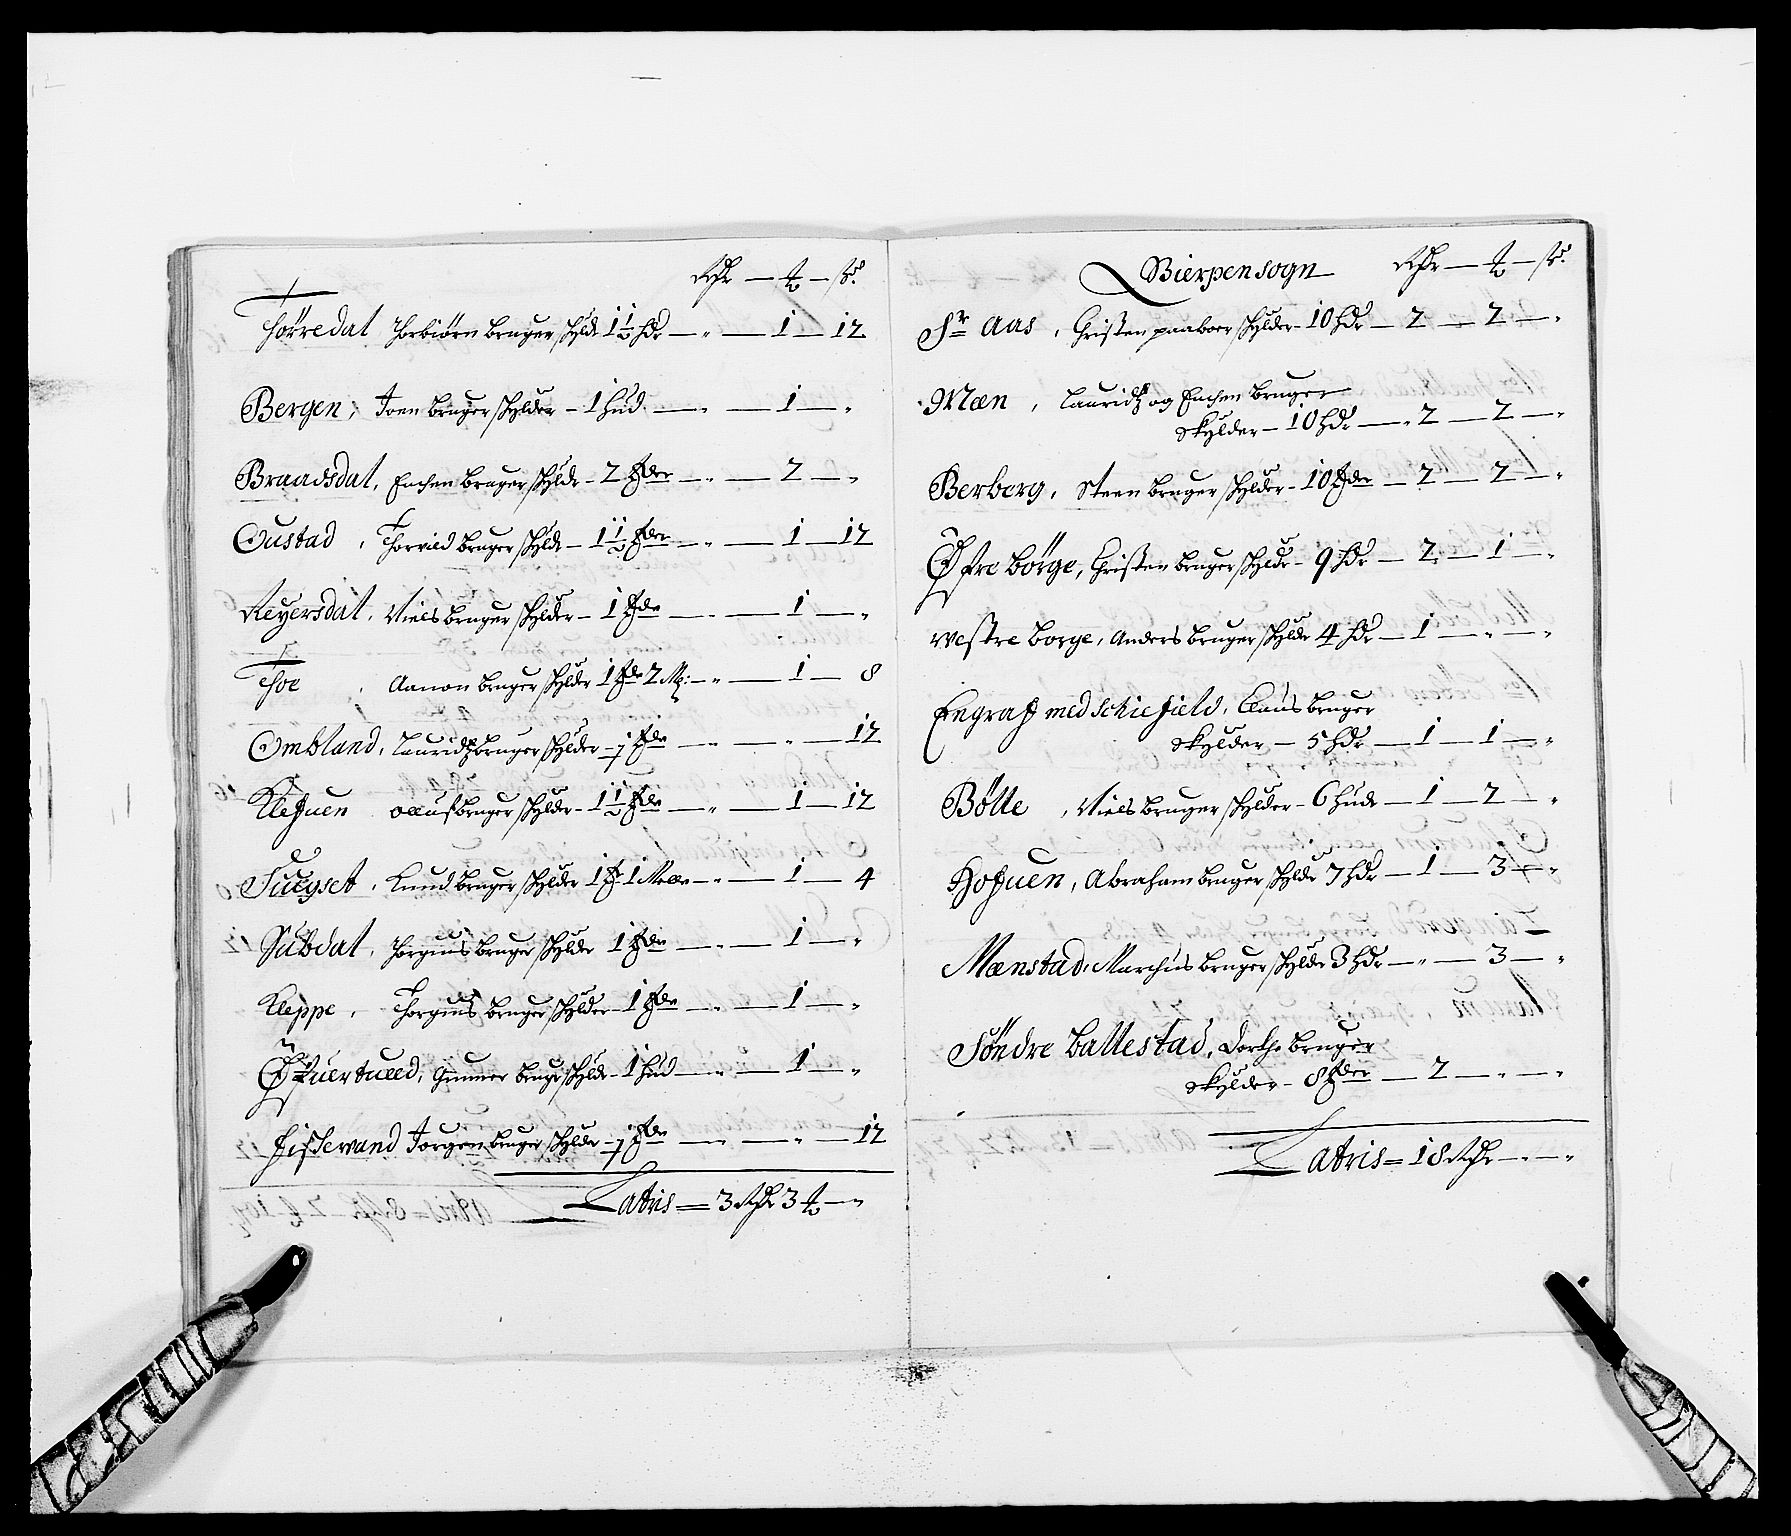 Rdr — ℔ — ß
Torredal Torbiörn bruger schylde 1½ hdr — „ — 1 — 12
Bergen, Joen bruger schylder – 1 hud — „ — 1 — „
Braadsdal, Enchen bruger schylde – 2 hder — „ — 2 — „
Oustad, Torvild bruger schylde – 1½ hder — „ — 1 — 12
Reyersdal, Niels bruger schylder – 1 hde — „ — 1 — „
Toe, Aanon bruger schylder 1 hde 2 Ml: — „ — 1 — 8
Ombland, Lauridtz bruger schylder – ½ hde — „ — „ — 12
Klefuen Oluf bruger schylder – 1½ hde — „ — 1 — 12
Suigset, Knud bruger schylder 1 h 1 Mele — „ — 1 — 4
Subdal, Jörgius bruger schylde 1 hde — „ — 1 — „
Kleppe, Torgius bruger schylder – 1 hde — „ — 1 — „
Øfuertued, Gunner bruger schylde – 1 hud — „ — 1 — „
Fistevand Jorgen bruger schylder – ½ hde — „ — „ — 12
Latris = 3 Rdr 3 ℔ — „
Bierpensogn Rdr — ℔ — ß
Sr Aas, Christen paaboer schylder – 10 hdr — 2 — 2 — „
Mæn, Lauridtz og Enchen bruger
skylder – 10 hdr — 2 — 2 — „
Berberg, Steen bruger schylder – 10 hder — 2 — 2 — „
Øfre börge, Christen bruger schylder – 9 hdr — 2 — 1 — „
westre borge, Anders bruger schylde 4 hdr — 1 — „ — „
Engraf med Schiefield, Claus bruger
skylder – 5 hdr — 1 — 1 — „
Bölle, Niels bruger schylder – 6 hude — 1 — 2 — „
Hofuen, Abraham bruger schylde 7 hdr — 1 — 3 — „
Mænstad, Marchus bruger schylde 3 hdr — „ — 3 — „
Söndre ballestad, Dorthe bruger
skylder – 8 hder — 2 — „ — „
Latris = 18 Rdr — „ — „